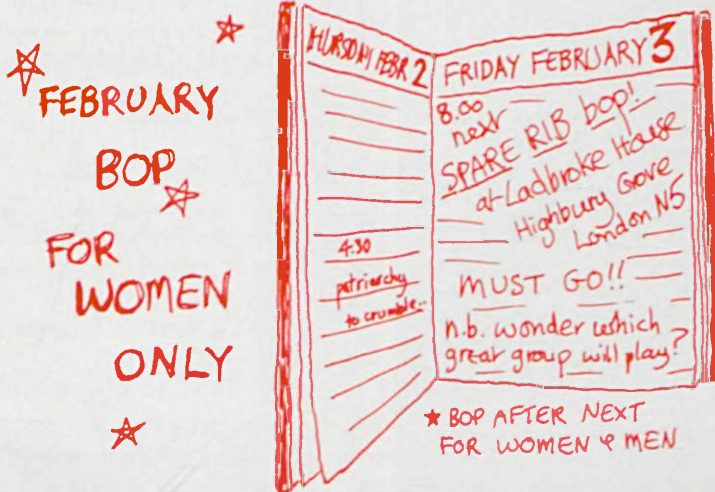 FEBRUARY
BOP
FOR
WOMEN
ONLY
THURSDAY FEBR 2
4.30
patriarchy
to crumble..
FRIDAY FEBRUARY 3
8.00
next
SPARE RIB bop!
at Ladbroke House
Highbury Grove
London N5
MUST GO!!
n.b. wonder which
great group will play?
★ BOP AFTER NEXT
FOR WOMEN & MEN